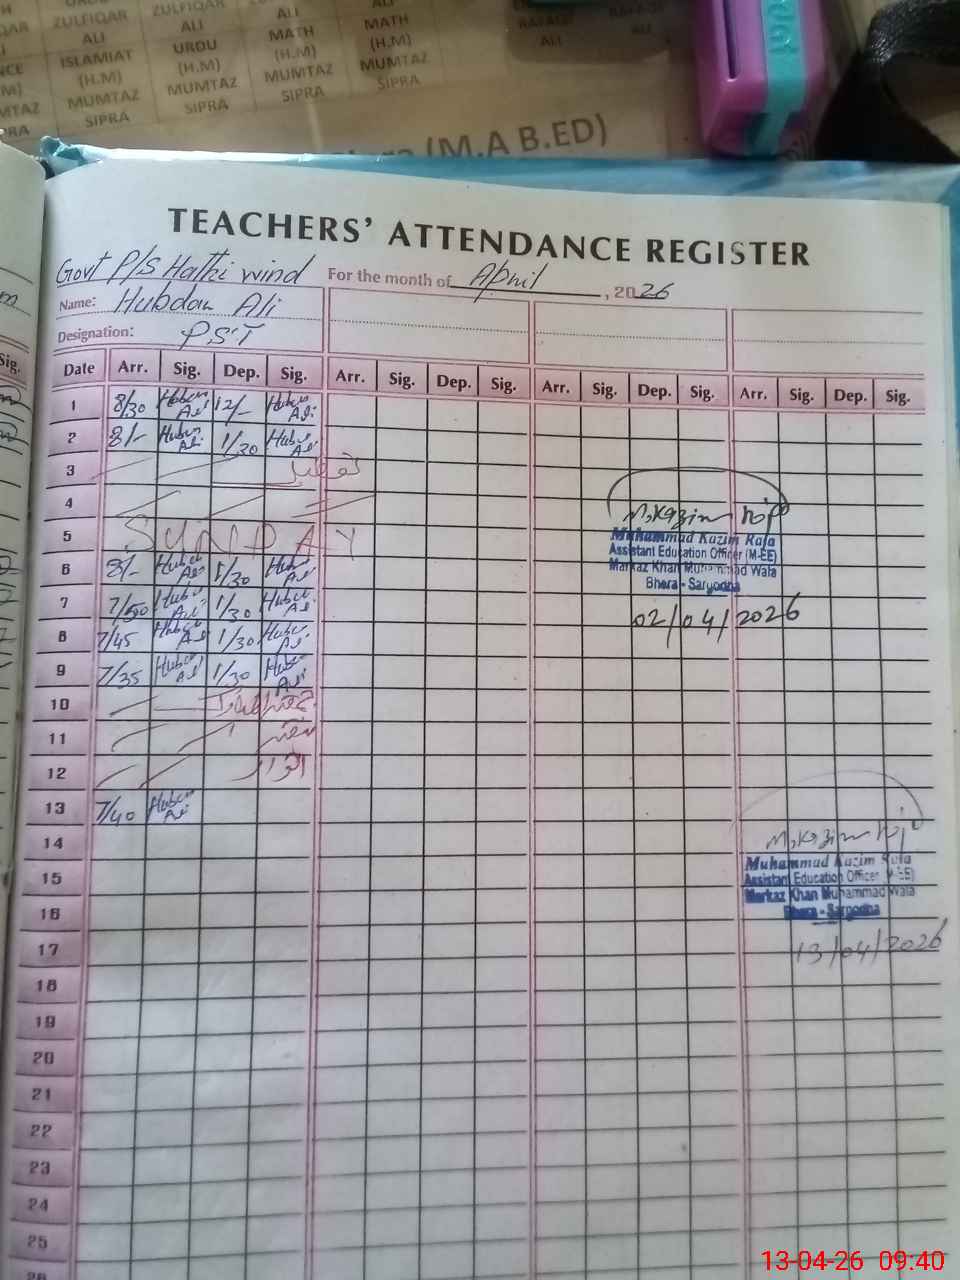 ZULFIQAR ZULFIQAR ALI MATH
ALI URDU MATH (H.M)
ISLAMIAT (H.M) (H.M) MUMTAZ
(H.M) MUMTAZ MUMTAZ SIPRA
MUMTAZ SIPRA SIPRA
SIPRA
(M.A B.ED)
TEACHERS' ATTENDANCE REGISTER
Govt P/S Hathi wind For the month of April, 2026
Name: Hubdar Ali
Designation: PST
Date Arr. Sig. Dep. Sig. Arr. Sig. Dep. Sig. Arr. Sig. Dep. Sig. Arr. Sig. Dep. Sig.
1 8/30 Hubdar Ali 12/- Hubdar Ali
2 8/- Hubdar Ali 1/30 Hubdar Ali
3 تعطیل
4
5 SUNDAY
6 8/- Hubdar Ali 1/30 Hubdar Ali
7 7/50 Hubdar Ali 1/30 Hubdar Ali
8 7/45 Hubdar Ali 1/30 Hubdar Ali
9 7/35 Hubdar Ali 1/30 Hubdar Ali
10
11 ہفتہ
12 اتوار
13 7/40 Hubdar Ali
14
15
16
17
18
19
20
21
22
23
24
25
26
M.Kazim Raja
Muhammad Kazim Raja
Assistant Education Officer (M-EE)
Markaz Khan Muhammad Wala
Bhera - Sargodha
02/04/2026
M.Kazim Raja
Muhammad Kazim Raja
Assistant Education Officer (M-EE)
Markaz Khan Muhammad Wala
Bhera - Sargodha
13/04/2026
13-04-26 09:40